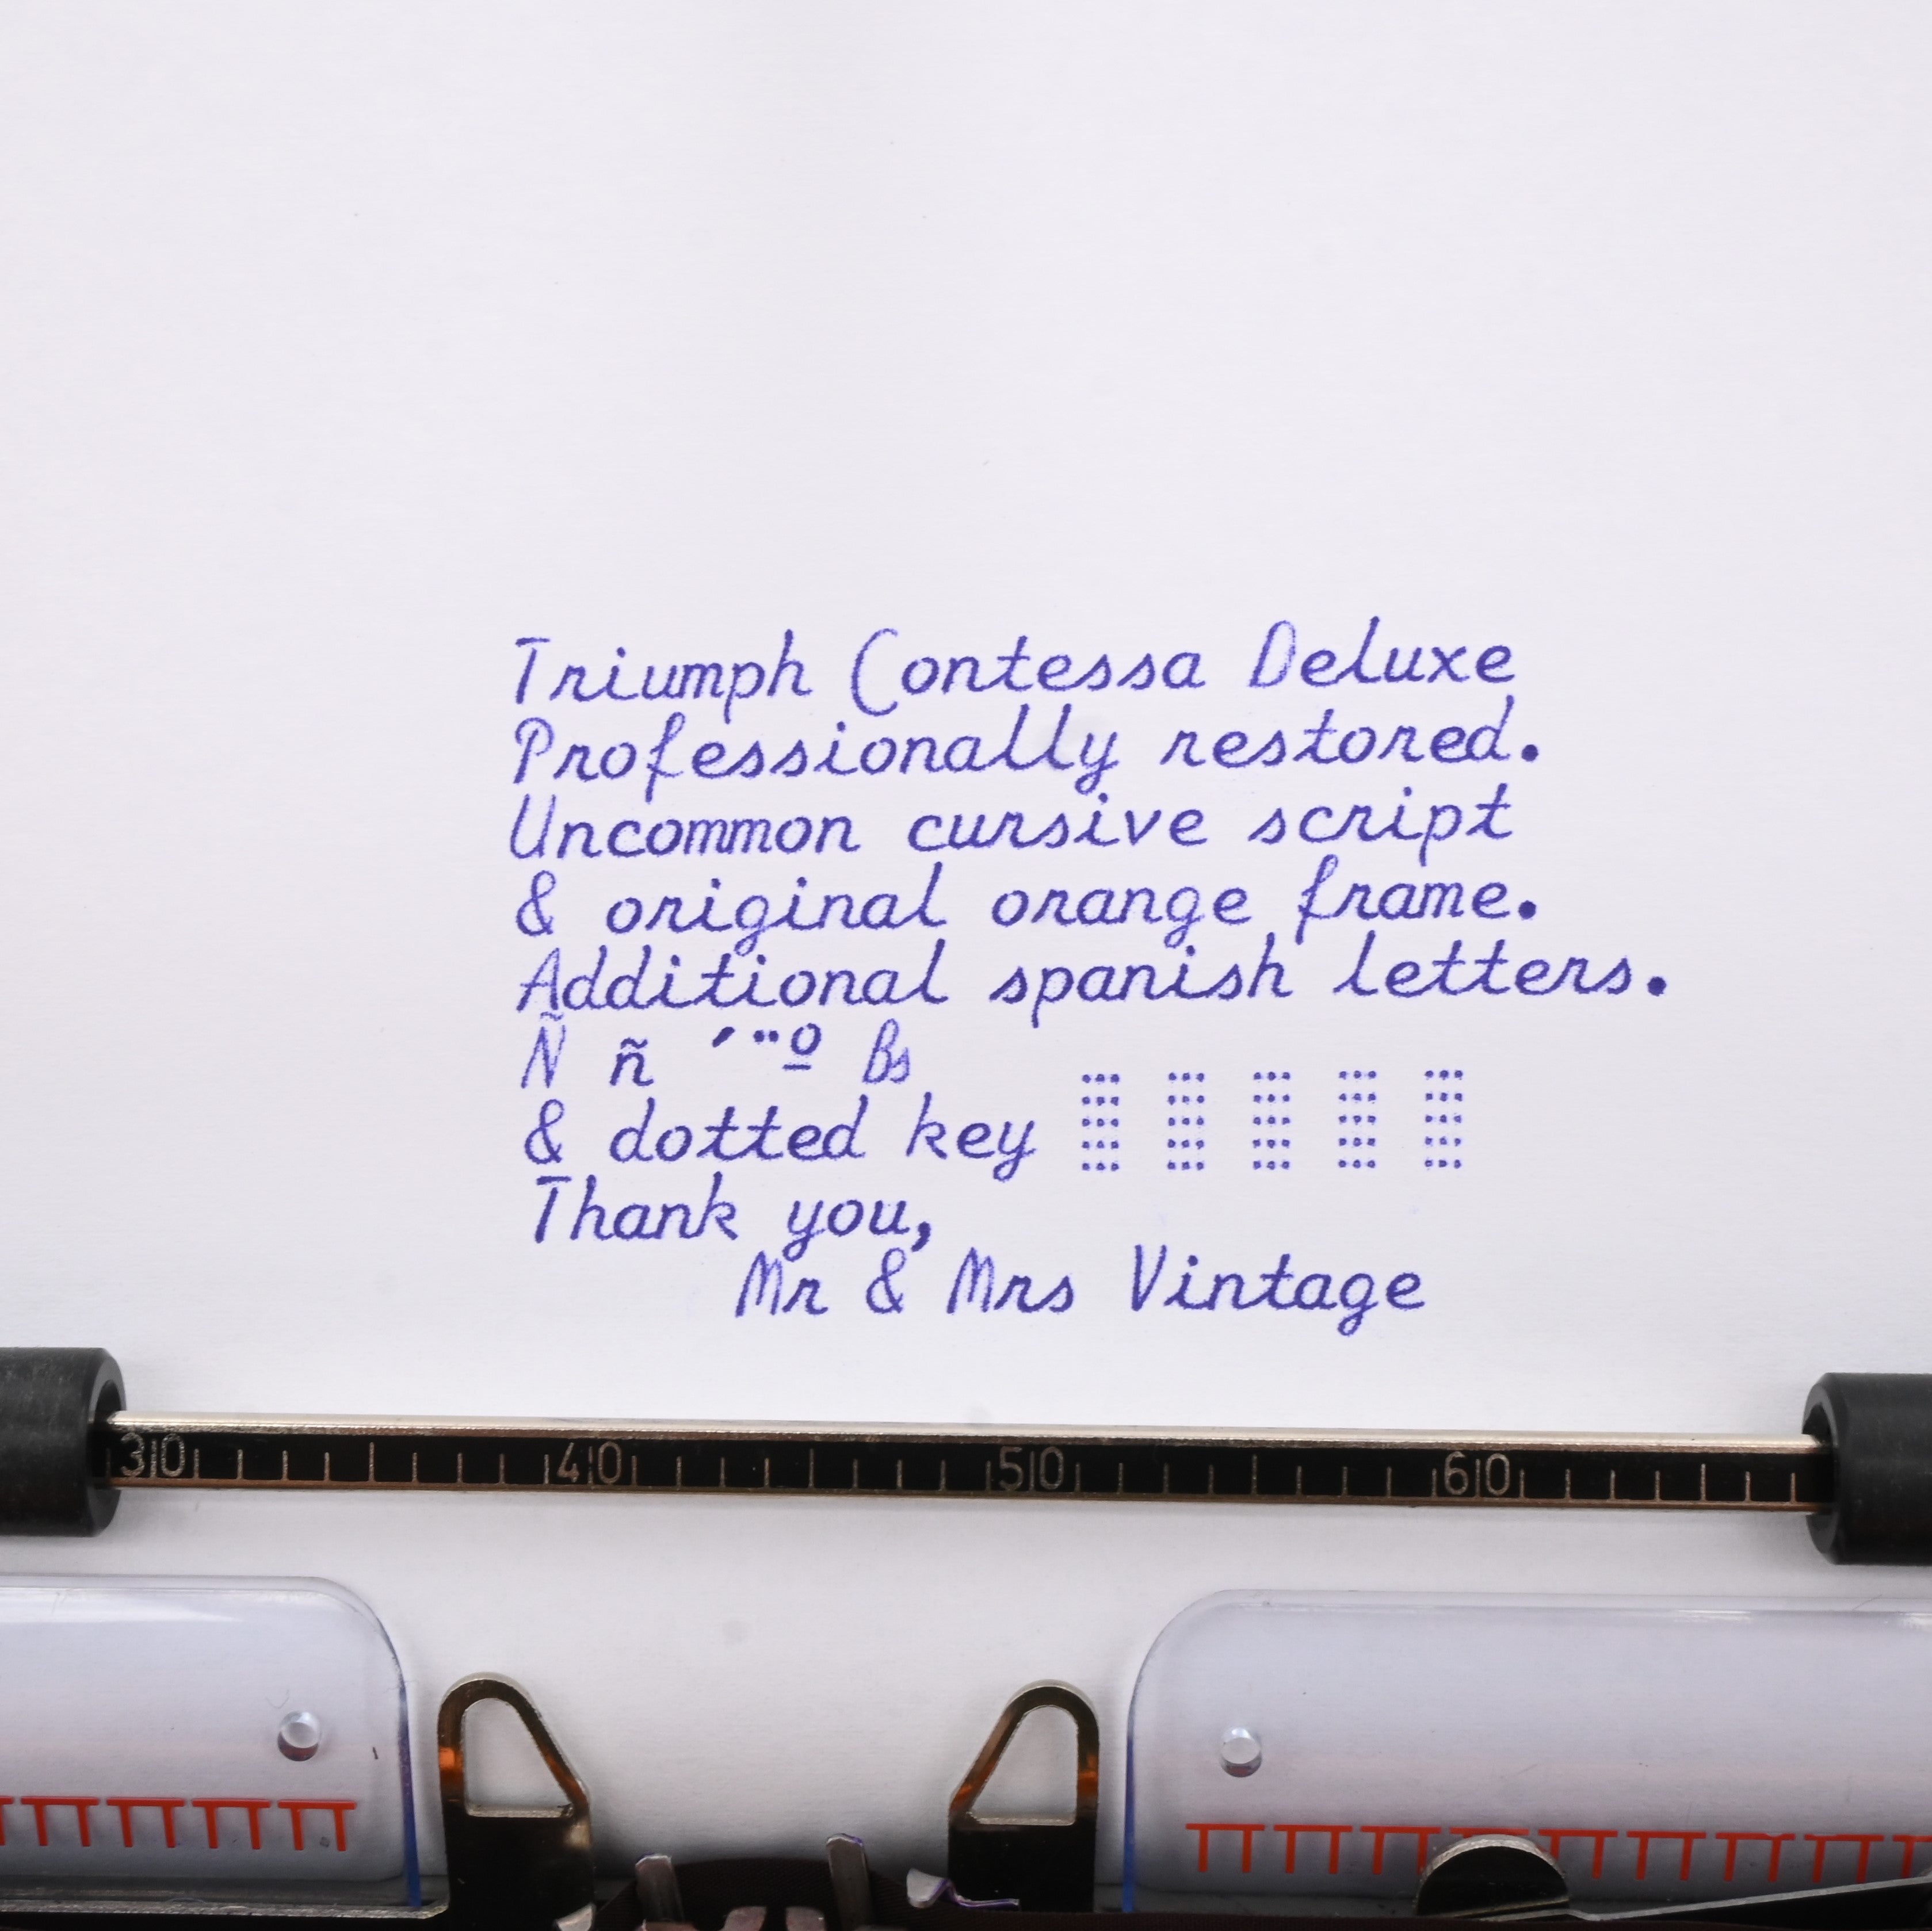 Triumph Contessa Deluxe
Professionally restored.
Uncommon cursive script
& original orange frame.
Additional spanish letters.
Ñ ñ ´¨º Bs
& dotted key
Thank you,
Mr & Mrs Vintage
30 40 50 60